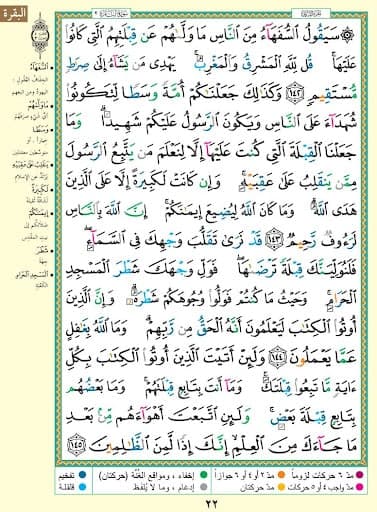 البقرة
۞ سَيَقُولُ ٱلسُّفَهَآءُ مِنَ ٱلنَّاسِ مَا وَلَّىٰهُمْ عَن قِبْلَتِهِمُ ٱلَّتِى كَانُوا۟
عَلَيْهَا ۚ قُل لِّلَّهِ ٱلْمَشْرِقُ وَٱلْمَغْرِبُ ۚ يَهْدِى مَن يَشَآءُ إِلَىٰ صِرَٰطٍ
مُّسْتَقِيمٍ ١٤٢ وَكَذَٰلِكَ جَعَلْنَٰكُمْ أُمَّةً وَسَطًا لِّتَكُونُوا۟
شُهَدَآءَ عَلَى ٱلنَّاسِ وَيَكُونَ ٱلرَّسُولُ عَلَيْكُمْ شَهِيدًا ۗ وَمَا
جَعَلْنَا ٱلْقِبْلَةَ ٱلَّتِى كُنتَ عَلَيْهَآ إِلَّا لِنَعْلَمَ مَن يَتَّبِعُ ٱلرَّسُولَ
مِمَّن يَنقَلِبُ عَلَىٰ عَقِبَيْهِ ۚ وَإِن كَانَتْ لَكَبِيرَةً إِلَّا عَلَى ٱلَّذِينَ
هَدَى ٱللَّهُ ۗ وَمَا كَانَ ٱللَّهُ لِيُضِيعَ إِيمَٰنَكُمْ ۚ إِنَّ ٱللَّهَ بِٱلنَّاسِ
لَرَءُوفٌ رَّحِيمٌ ١٤٣ قَدْ نَرَىٰ تَقَلُّبَ وَجْهِكَ فِى ٱلسَّمَآءِ ۖ
فَلَنُوَلِّيَنَّكَ قِبْلَةً تَرْضَىٰهَا ۚ فَوَلِّ وَجْهَكَ شَطْرَ ٱلْمَسْجِدِ
ٱلْحَرَامِ ۚ وَحَيْثُ مَا كُنتُمْ فَوَلُّوا۟ وُجُوهَكُمْ شَطْرَهُۥ ۗ وَإِنَّ ٱلَّذِينَ
أُوتُوا۟ ٱلْكِتَٰبَ لَيَعْلَمُونَ أَنَّهُ ٱلْحَقُّ مِن رَّبِّهِمْ ۗ وَمَا ٱللَّهُ بِغَٰفِلٍ
عَمَّا يَعْمَلُونَ ١٤٤ وَلَئِنْ أَتَيْتَ ٱلَّذِينَ أُوتُوا۟ ٱلْكِتَٰبَ بِكُلِّ
ءَايَةٍ مَّا تَبِعُوا۟ قِبْلَتَكَ ۚ وَمَآ أَنتَ بِتَابِعٍ قِبْلَتَهُمْ ۚ وَمَا بَعْضُهُم
بِتَابِعٍ قِبْلَةَ بَعْضٍ ۚ وَلَئِنِ ٱتَّبَعْتَ أَهْوَآءَهُم مِّنۢ بَعْدِ
مَا جَآءَكَ مِنَ ٱلْعِلْمِ ۙ إِنَّكَ إِذًا لَّمِنَ ٱلظَّٰلِمِينَ ١٤٥
السُّفَهَاءُ
مَا وَلَّاهُمْ
وَسَطًا
لَكَبِيرَةً
إِيمَانَكُمْ
شَطْرَ
المَسْجِدِ الحَرَامِ
الكعبة
مدّ ٦ حركات لزوماً
مدّ ٢ أو ٤ أو ٦ جوازاً
إخفاء، ومواقع الغُنَّة (حركتان)
تفخيم
مدّ واجب ٤ أو ٥ حركات
مدّ حركتان
إدغام، وما لا يُلفَظ
قلقلة
٢٢